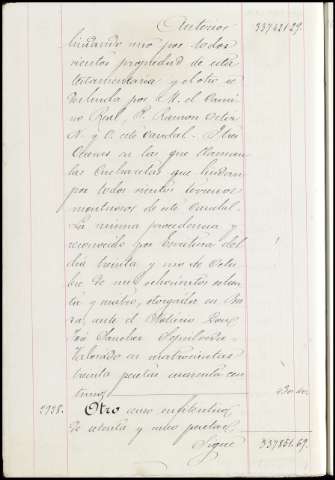 Anterior 33742129.
lindando uno por todos
vientos propiedad de esta
testamentaria y el otro se
deslinda por M. el Cami-
no Real, P. Ramon
N. y O. este Caudal. Tres
en las que llaman
las que lindan
por todos vientos terrenos
montuosos de este Caudal.
La misma procedencia y
reconocido por Escritura del
dia treinta y uno de Octu-
bre de mil ochocientos seten-
ta y cuatro, otorgada en
ante el Notario Don
José Sanchez Sepulveda.
Valorado en cuatrocientas
treinta pesetas cuarenta cen-
timos 430.40.
2938. Otro censo enfiteutico
de setenta y ocho pesetas
Sigue 337851.69.